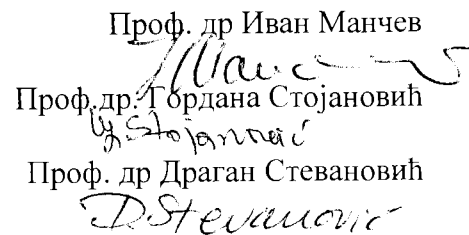 Проф. др Иван Манчев
Проф.др. Гордана Стојановић
G. Stojanović
Проф. др Драган Стевановић
D. Stevanović